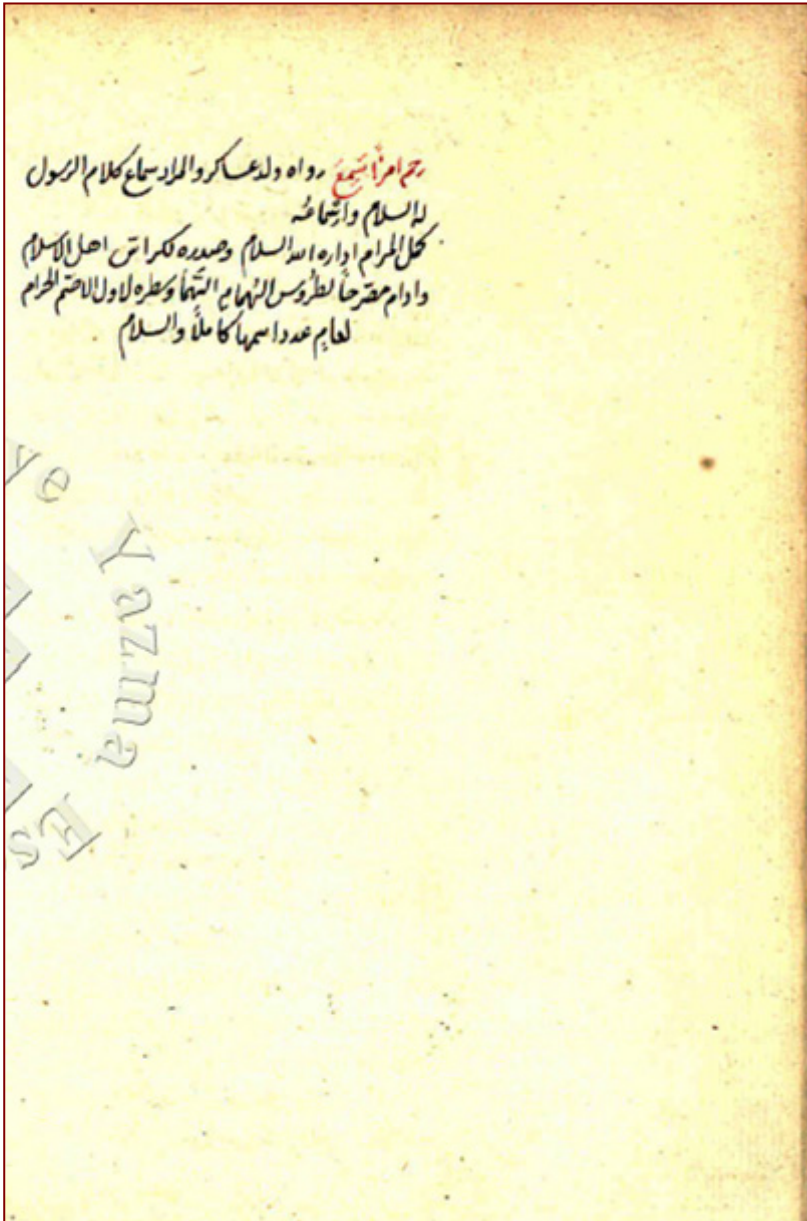 رحم امرأ سمع رواه ولد عساكر والمراد سماع كلام الرسول
له السلام واسماعه
كمل المرام اداره الله السلام وصدره لكراس اهل الاسلام
وادام مصرحا لطروس وسطره لاول الاصم الحرام
لعام عدد اسمها كاملا والسلام
ye Yazma Es